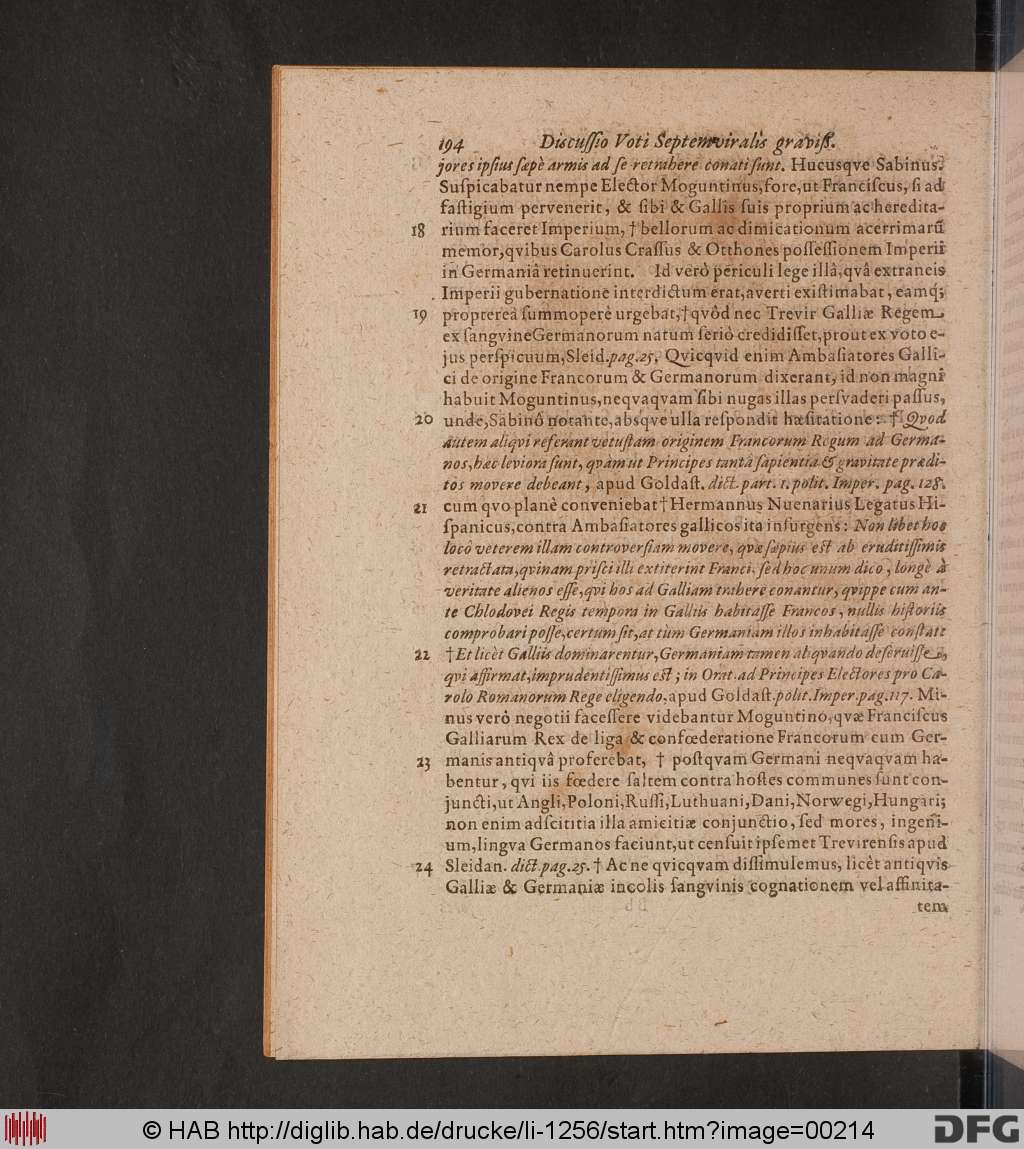 194 Discussio Voti Septemviralis graviss.
jores ipsius sæpè armis ad se retrahere conati sunt. Hucusqve Sabinus.
Suspicabatur nempe Elector Moguntinus, fore, ut Franciscus, si ad
fastigium pervenerit, & sibi & Gallis suis proprium ac heredita-
18 rium faceret Imperium, † bellorum ac dimicationum acerrimarũ
memor, qvibus Carolus Crassus & Otthones possessionem Imperii
in Germaniâ retinuerint. Id verò periculi lege illâ, qvâ extraneis
Imperii gubernatione interdictum erat, averti existimabat, eamq;
19 proptereà summoperè urgebat, † qvôd nec Trevir Galliæ Regem
ex sangvine Germanorum natum seriò credidisset, prout ex voto e-
jus perspicuum, Sleid. pag. 25. Qvicqvid enim Ambasiatores Galli-
ci de origine Francorum & Germanorum dixerant, id non magni
habuit Moguntinus, neqvaqvam sibi nugas illas persvaderi passus,
20 unde, Sabinô notante, absqve ulla respondit hæsitatione: † Qvod
autem aliqvi referant vetustam originem Francorum Regum ad Germa-
nos, hæc leviora sunt, qvàm ut Principes tantâ sapientiâ & gravitate prædi-
tos movere debeant, apud Goldast. dict. part. 1. polit. Imper. pag. 128.
21 cum qvo planè conveniebat † Hermannus Nuenarius Legatus Hi-
spanicus, contra Ambasiatores gallicos ita insurgens: Non libet hoc
locô veterem illam controversiam movere, qvæ sæpius est ab eruditissimis
retractata, qvinam prisci illi extiterint Franci, sed hoc unum dico, longè à
veritate alienos esse, qvi hos ad Galliam trahere conantur, qvippe cum an-
te Chlodovei Regis tempora in Galliis habitasse Francos, nullis historiis
comprobari posse, certum sit, at tùm Germaniam illos inhabitasse constat:
22 † Et licèt Galliis dominarentur, Germaniam tamen aliqvando deseruisse,
qvi affirmat, imprudentissimus est; in Orat. ad Principes Electores pro Ca-
rolo Romanorum Rege eligendo, apud Goldast. polit. Imper. pag. 117. Mi-
nus verò negotii facessere videbantur Moguntino, qvæ Franciscus
Galliarum Rex de liga & confœderatione Francorum cum Ger-
23 manis antiqvâ proferebat, † postqvam Germani neqvaqvam ha-
bentur, qvi iis fœdere saltem contra hostes communes sunt con-
juncti, ut Angli, Poloni, Russi, Luthuani, Dani, Norwegi, Hungari;
non enim adscititia illa amicitiæ conjunctio, sed mores, ingeni-
um, lingva Germanos faciunt, ut censuit ipsemet Trevirensis apud
24 Sleidan. dict. pag. 25. † Ac ne qvicqvam dissimulemus, licèt antiqvis
Galliæ & Germaniæ incolis sangvinis cognationem vel affinita-
tem
© HAB http://diglib.hab.de/drucke/li-1256/start.htm?image=00214
DFG